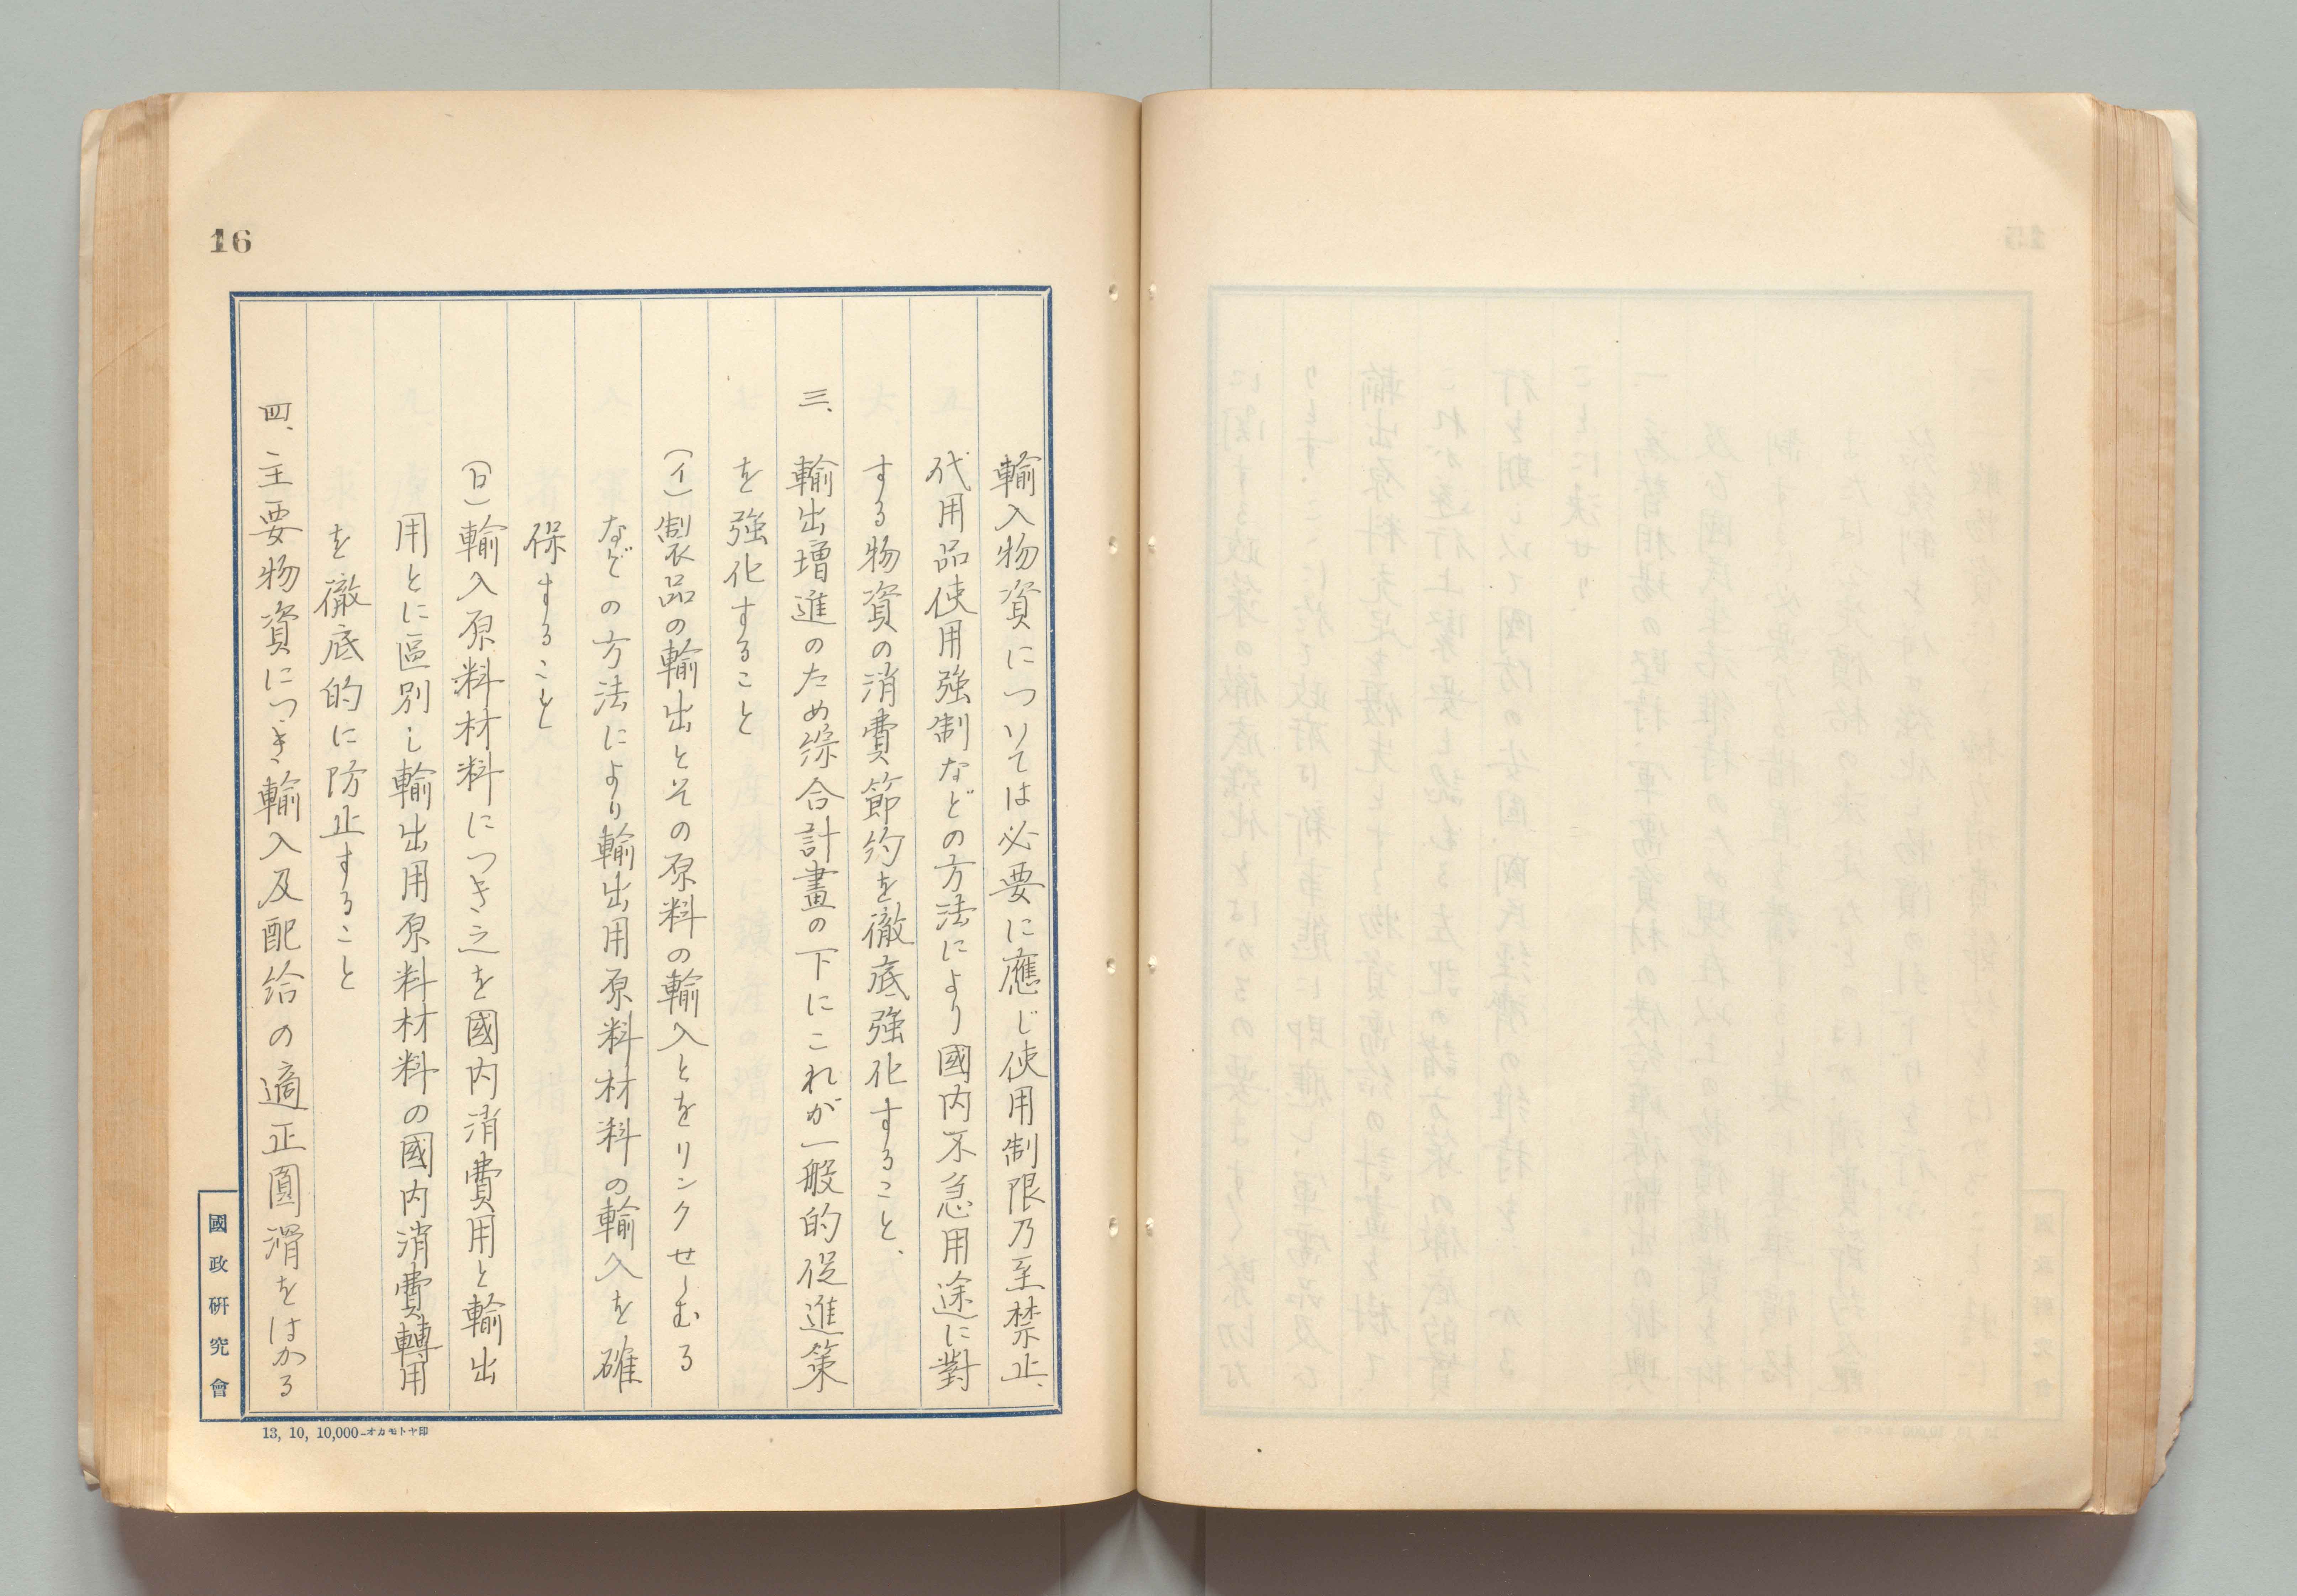 16
輸入物資については必要に應じ使用制限乃至禁止、
代用品使用強制などの方法により國内不急用途に對
する物資の消費節約を徹底強化すること、
三、輸出増進のため綜合計畫の下にこれが一般的促進策
を強化すること
(イ)製品の輸出とその原料の輸入とをリンクせしむる
などの方法により輸出用原料材料の輸入を確
保すること
(ロ)輸入原料材料につき之を國内消費用と輸出
用とに區別し輸出用原料材料の國内消費轉用
を徹底的に防止すること
四、主要物資につき輸入及配給の適正圓滑をはかる
國政硏究會
13, 10, 10,000-オカモトヤ印